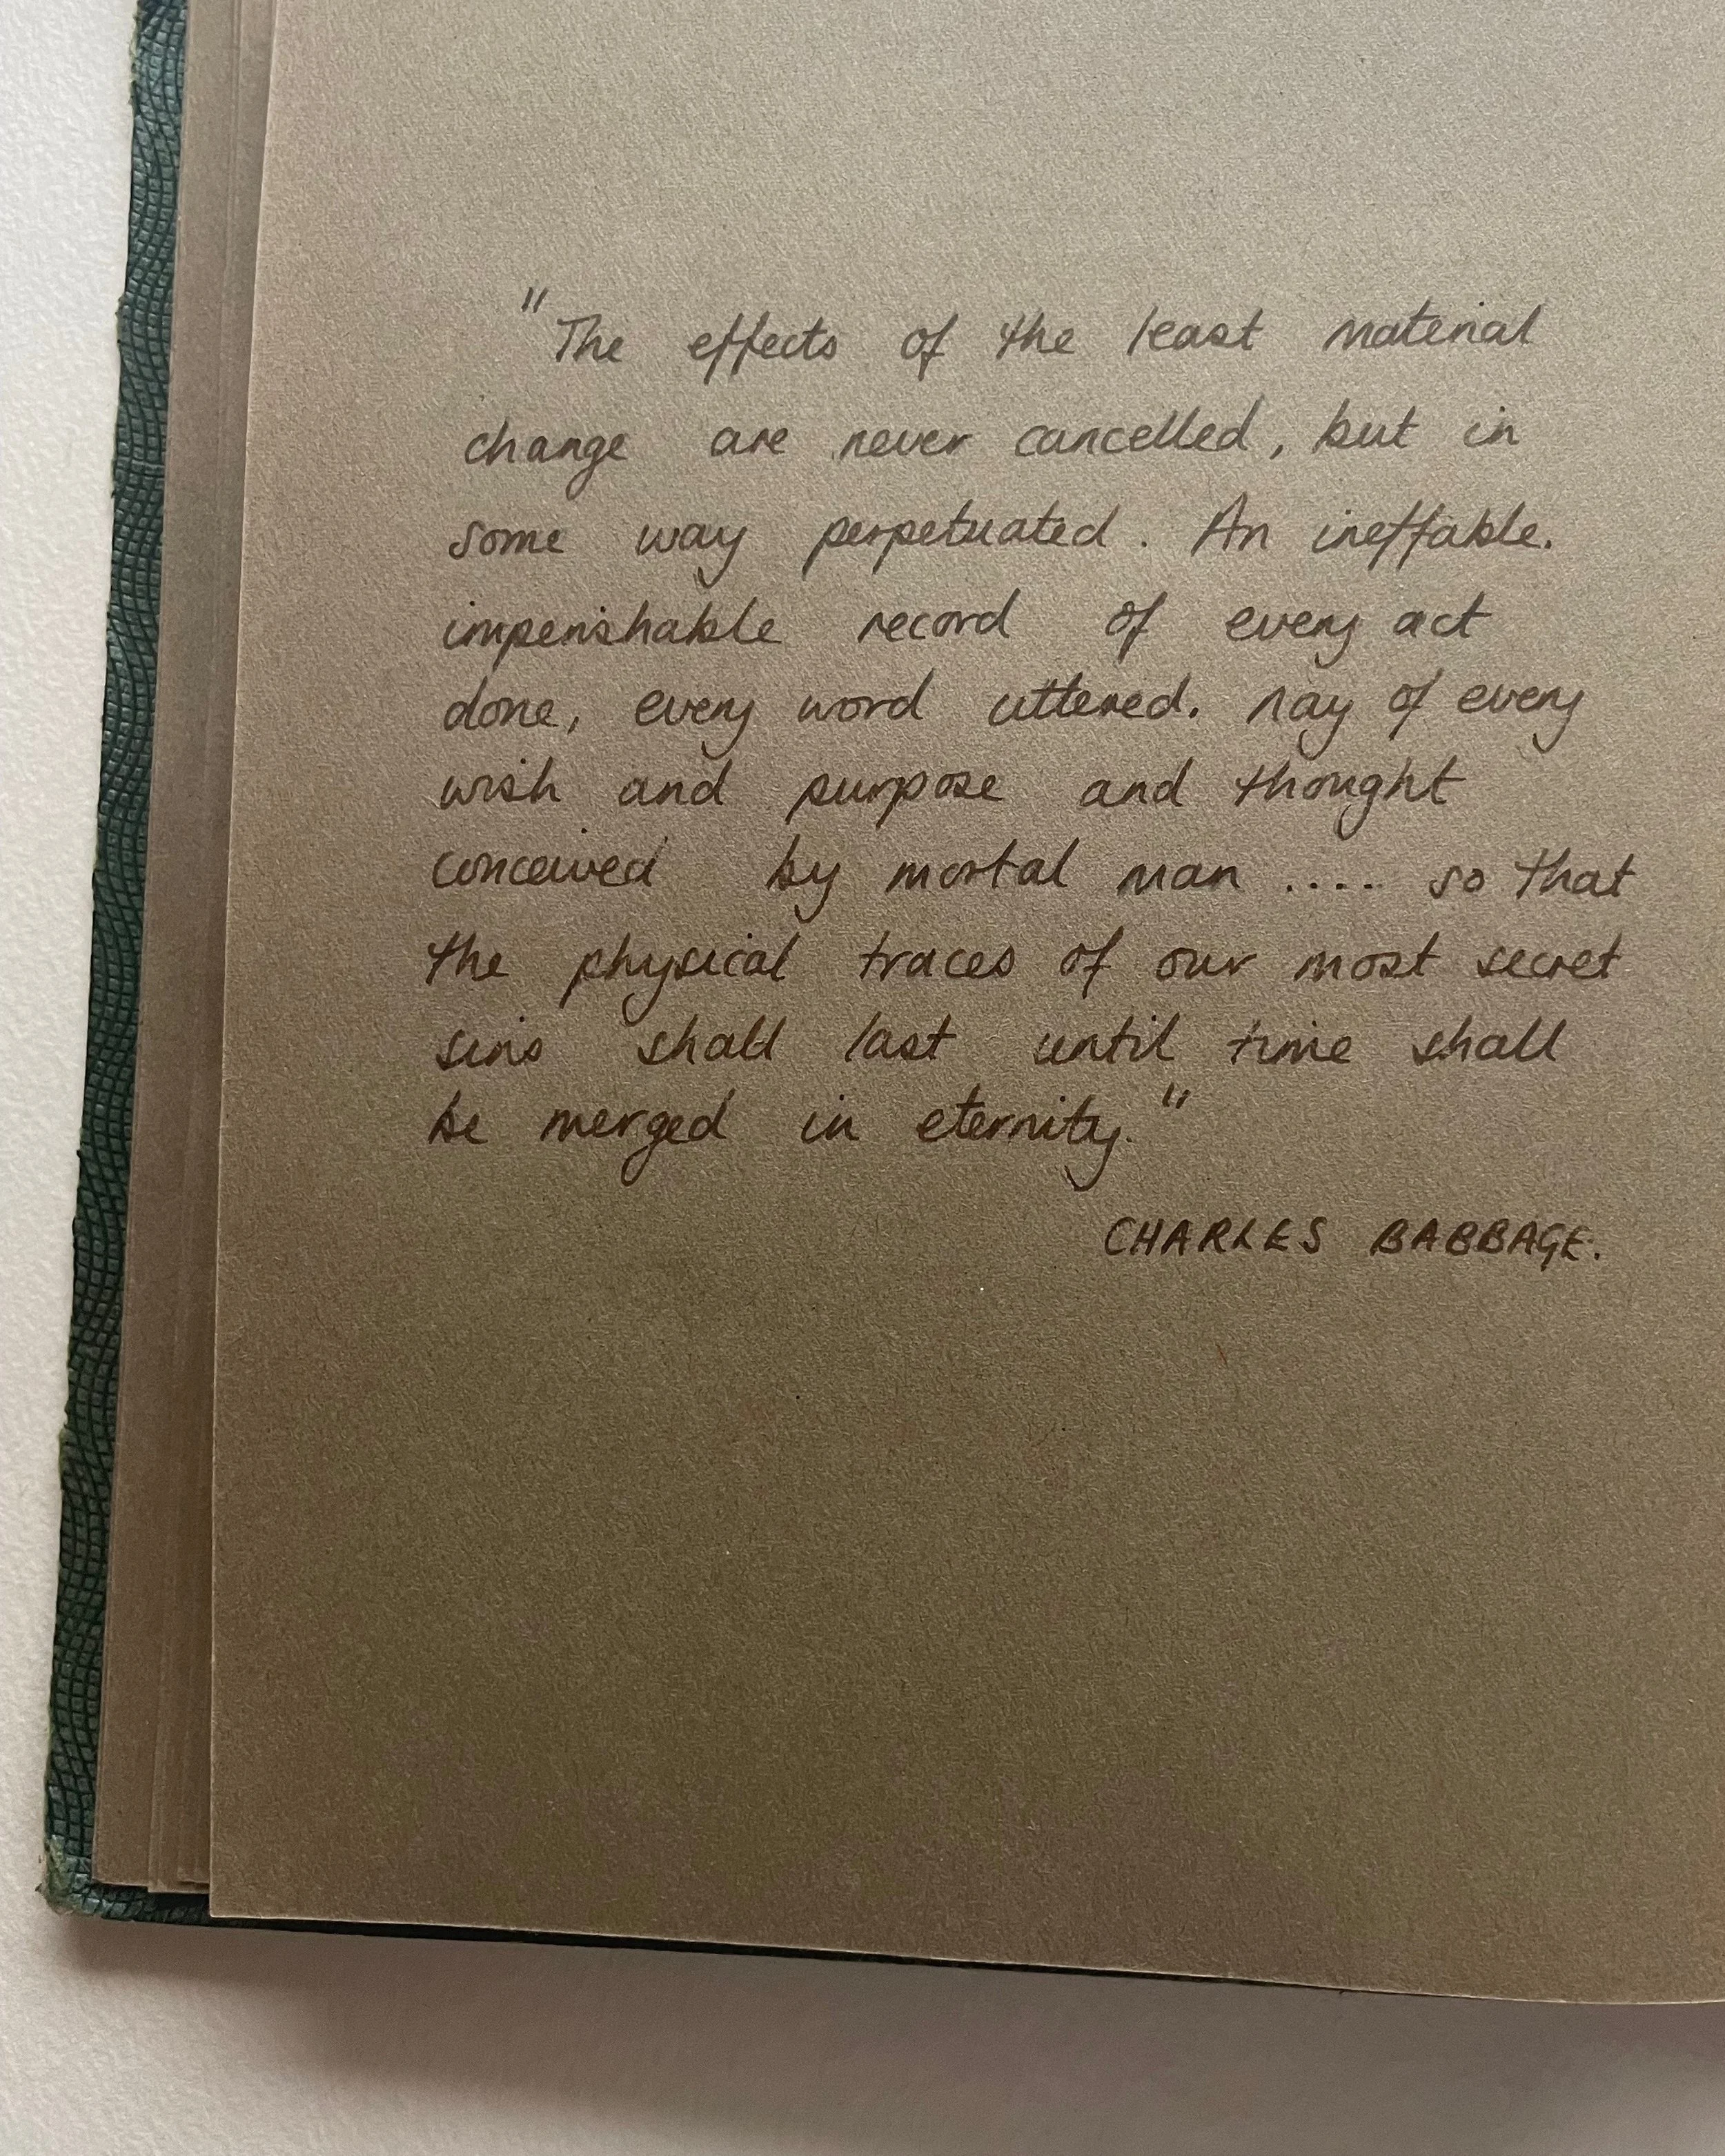 "The effects of the least material
change are never cancelled, but in
some way perpetuated. An ineffable.
imperishable record of every act
done, every word uttered. nay of every
wish and purpose and thought
conceived by mortal man .... so that
the physical traces of our most secret
sins shall last until time shall
be merged in eternity."
CHARLES BABBAGE.